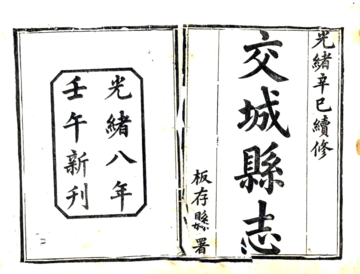 光緒辛巳續修
交城縣志
板存縣署
光緒八年
壬午新刊